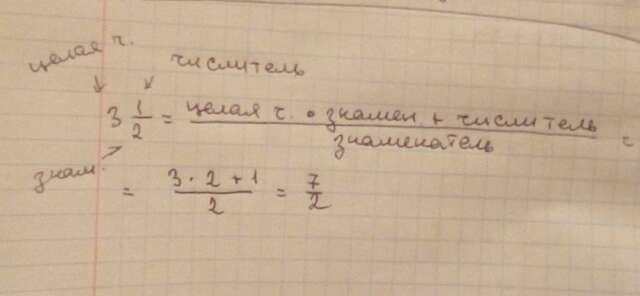 целая ч.
числитель
3 1/2 = целая ч. • знамен + числитель / знаменатель =
знам.
= 3 · 2 + 1 / 2 = 7/2